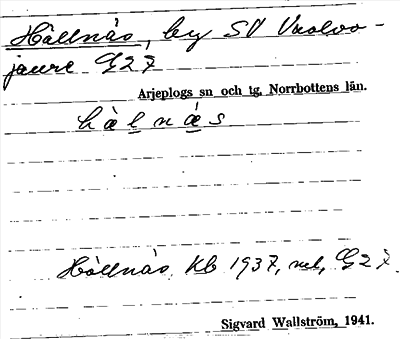 Hällnäs, by SV Vuolvo-
jaure G27
Arjeplogs sn och tg, Norrbottens län.
hälnäs
Hällnäs, Kb 1937, G27.
Sigvard Wallström, 1941.